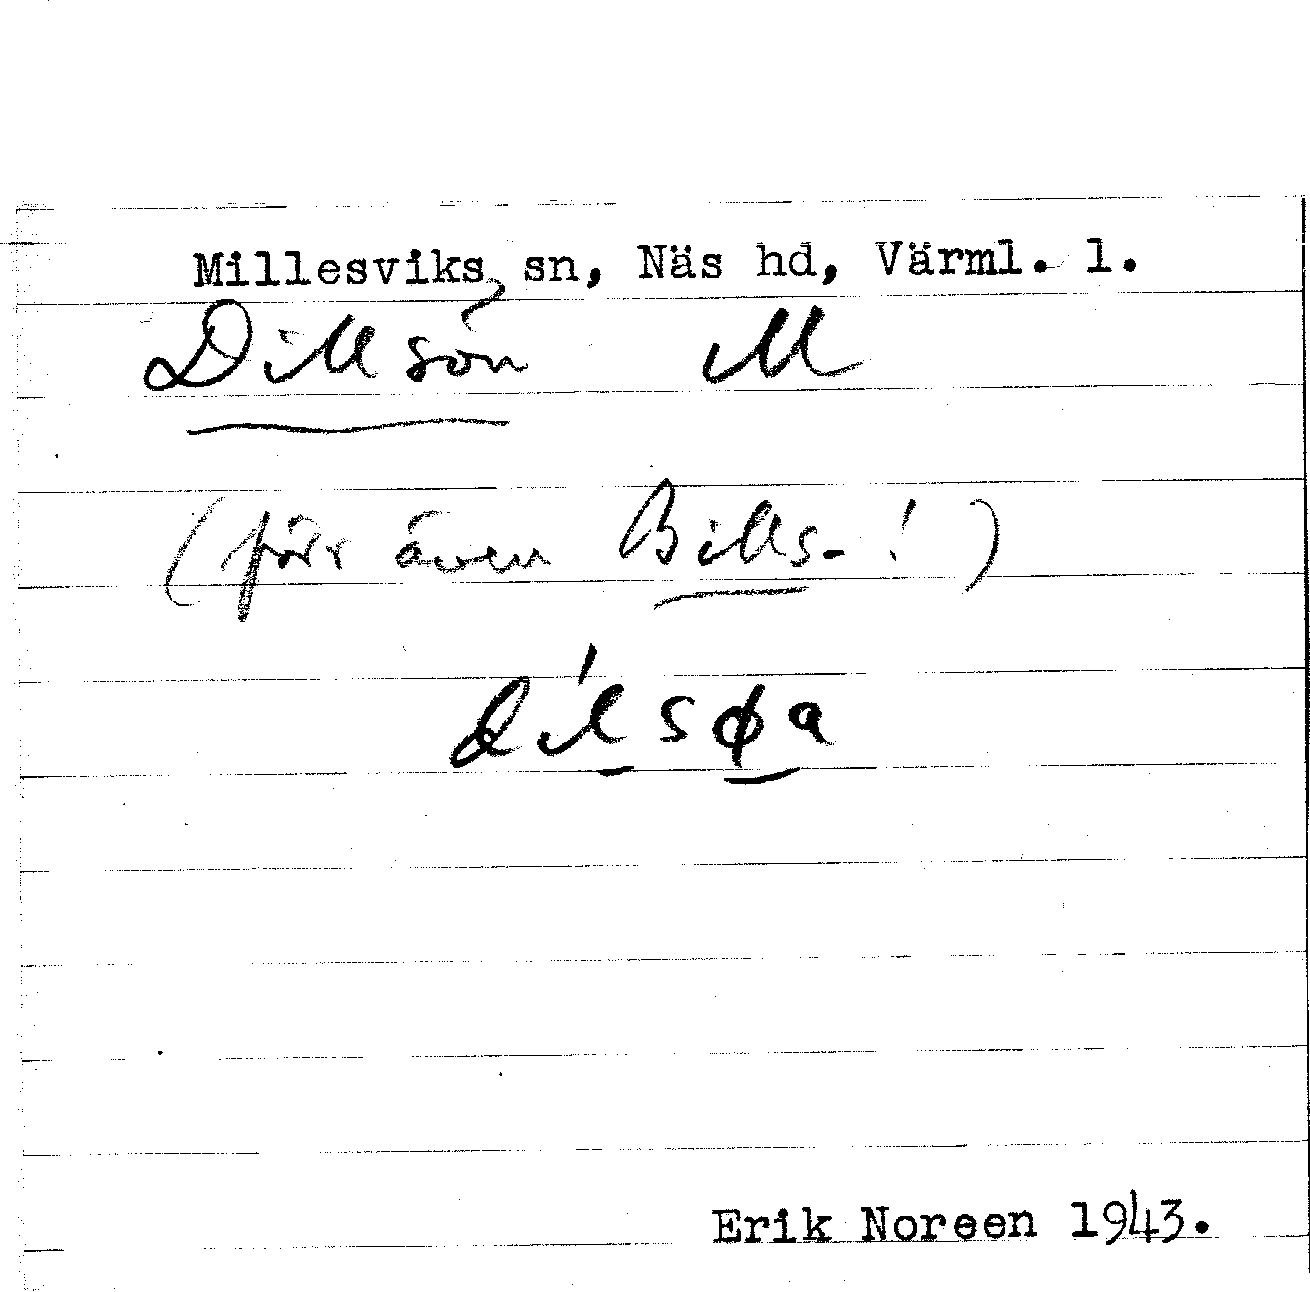 Millesviks sn, Näs hd, Värml. l.
Dillsön M
(förr även Bills- ! )
dílsøa
Erik Noreen 1943.